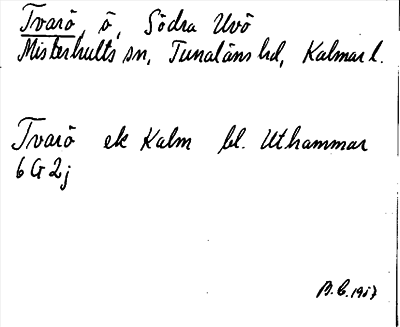 Tvarö, ö, Södra Uvö
Misterhults sn, Tunaläns hd, Kalmar l.
Tvarö ek Kalm bl. Uthammar
6 G 2j
B.C. 1957